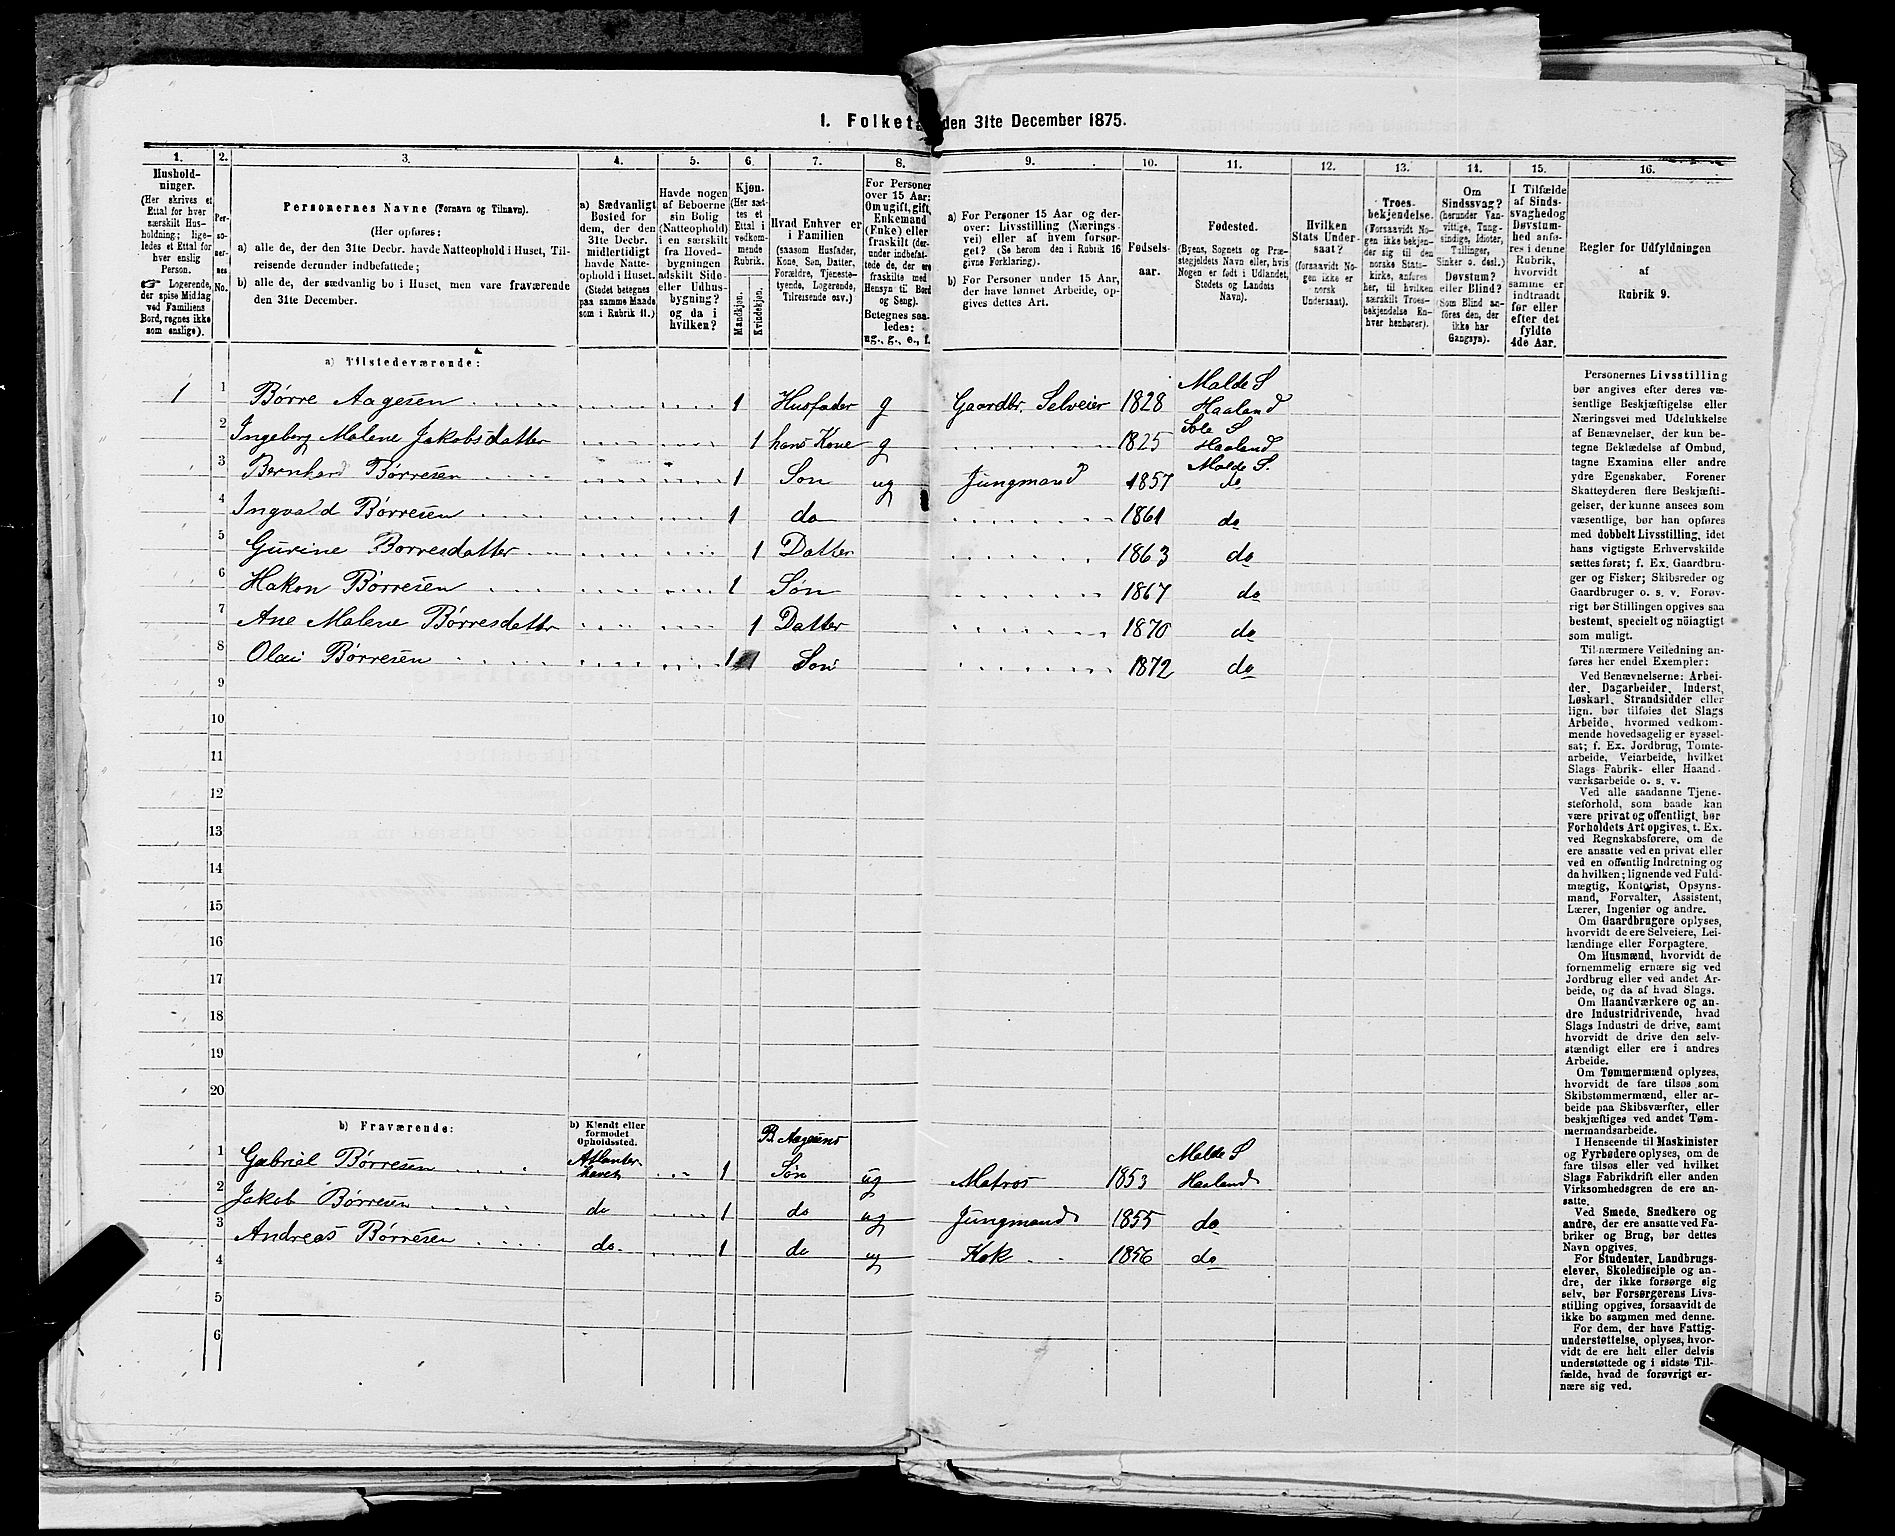 1. Folketæ den 31te December 1875.
1. 2. 3. 4. 5. 6. 7. 8. 9. 10. 11. 12. 13. 14. 15. 16.
Hushold-
ninger.
(Her skrives et
Ettal for hver
særskilt Hus-
holdning; lige-
ledes et Ettal for
hver enslig
Person.
☞ Logerende,
der spise Middag
ved Familiens
Bord, regnes ikke
som enslige).
Per-
so-
ner-
nes
No.
Personernes Navne (Fornavn og Tilnavn).
(Her opføres:
a) alle de, der den 31te Decbr. havde Natteophold i Huset, Til-
reisende derunder indbefattede;
b) alle de, der sædvanlig bo i Huset, men vare fraværende
den 31te December.
a) Sædvanligt
Bosted for
dem, der den
31te Decbr.
midlertidigt
havde Natte-
ophold i Huset.
(Stedet betegnes
paa samme Maade
som i Rubrik 11.)
Havde nogen
af Beboerne
sin Bolig
(Natteophold)
i en særskilt
fra Hoved-
bygningen
adskilt Side-
eller Udhus-
bygning?
og da i
hvilken?
Kjøn.
(Her sæt-
tes et
Ettal i
vedkom-
mende
Rubrik.
Mandkjøn.
Kvindekjøn.
Hvad Enhver er
i Familien
(saasom Husfader,
Kone, Søn, Datter,
Forældre, Tjeneste-
tyende, Logerende,
Tilreisende osv.)
For Personer
over 15 Aar:
Om ugift, gift,
Enkemand
(Enke) eller
fraskilt (der-
under indbefat-
tede de, der ere
fraskilte med
Hensyn til Bord
og Seng).
Betegnes saa-
ledes:
ug., g., e., f.
a) For Personer 15 Aar og der-
over: Livsstilling (Nærings-
vei) eller af hvem forsør-
get? (Se herom den i Rubrik 16
givne Forklaring).
b) For Personer under 15 Aar,
der have lønnet Arbeide, op-
gives dettes Art.
Fødsels-
aar.
Fødested.
(Byens, Sognets og Præ-
stegjeldets Navn eller, hvis
Nogen er født i Udlandet,
Stedets og Landets
Navn).
Hvilken
Stats Under-
saat?
(forsaavidt No-
gen ikke er
norsk
Undersaat).
Troes-
bekjendelse.
(Forsaavidt No-
gen ikke bekjen-
der sig til den
norske Stats-
kirke, anføres
her, til hvilken
særskilt Troes-
bekjendelse En-
hver henhører).
Om
Sindssvag?
(herunder Van-
vittige, Tung-
sindige, Idioter,
Tullinger,
Sinker o. desl.)
Døvstum?
eller Blind?
(Som Blind an-
føres den, der
ikke har
Gangsyn).
I Tilfælde
af Sinds-
svaghed og
Døvstum-
hed anfø-
res i denne
Rubrik,
hvorvidt
samme er
indtraadt
før eller
efter det
fyldte
4de Aar.
Regler for Udfyldningen
af
Rubrik 9.
a) Tilstedeværende:
1 1 Børre Aagesen 1 Husfader g Gaardbr. Selveier 1828 Malde S Haaland
2 Ingeberg Malene Jakobsdatter 1 hans Kone g 1825 Sole S Haaland
3 Bernhard Børresen 1 Søn ug Jungmand 1857 Malde S. do
4 Ingvald Børresen 1 do 1861 do
5 Gurine Børresdatter 1 Datter 1863 do
6 Hakon Børresen 1 Søn 1867 do
7 Ane Malene Børresdatter 1 Datter 1870 do
8 Olai Børresen 1 1 Søn 1872 do
9
10
11
12
13
14
15
16
17
18
19
20
b) Fraværende:
b) Kjendt eller
formodet
Opholdssted.
B. Aagesens
1 Gabriel Børresen Atlanter havet 1 Søn ug Matros 1853 Malde S Haaland
2 Jakob Børresen do 1 do ug Jungmand 1855 do
3 Andreas Børresen do. 1 do ug Kok 1856 do
4
5
6
Personernes Livsstilling
bør angives efter deres væ-
sentlige Beskjæftigelse eller
Næringsvei med Udelukkelse
af Benævnelser, der kun be-
tegne Beklædelse af Ombud,
tagne Examina eller andre
ydre Egenskaber. Forener
Skatteyderen flere Beskjæfti-
gelser, der kunne ansees som
væsentlige, bør han opføres
med dobbelt Livsstilling, idet
hans vigtigste Erhvervskilde
sættes først; f. Ex. Gaardbru-
ger og Fisker; Skibsreder og
Gaardbruger o. s. v. Forøv-
rigt bør Stillingen opgives saa
bestemt, specielt og nöiagtigt
som muligt.
Til nærmere Veiledning an-
føres her endel Exempler:
Ved Benævnelserne: Arbei-
der, Dagarbeider, Inderst,
Løskarl, Strandsidder eller
lign. bør tilføies det Slags
Arbeide, hvormed vedkom-
mende hovedsagelig er syssel-
sat; f. Ex. Jordbrug, Tomte-
arbeide, Veiarbeide, hvilket
Slags Fabrik- eller Haand-
værksarbeide o. s. v.
Ved alle saadanne Tjene-
steforhold, som baade kan
være privat og offentligt, bør
Forholdets Art opgives, t. Ex.
ved Regnskabsførere, om de
ere ansatte ved en privat eller
ved en offentlig Indretning og
da hvilken; lignende ved Fuld-
mægtig, Kontorist, Opsyns-
mand, Forvalter, Assistent,
Lærer, Ingeniør og andre.
Om Gaardbrugere oplyses,
hvorvidt de ere Selveiere, Lei-
lændinge eller Forpagtere.
Om Husmænd, hvorvidt de
fornemmelig ernære sig ved
Jordbrug eller ved andet Ar-
beide, og da af hvad Slags.
Om Haandværkere og an-
dre Industridrivende, hvad
Slags Industri de drive, samt
hvorvidt de drive den selv-
stændigt eller ere i andres
Arbeide.
Om Tømmermænd oplyses,
hvorvidt de fare tilsøs som
Skibstømmermænd, eller ar-
beide paa Skibsværfter, eller
beskjæftiges ved andet Tøm-
mermandsarbeide.
I Henseende til Maskinister
og Fyrbødere oplyses, om de
fare tilsøs eller ved hvilket
Slags Fabrikdrift eller anden
Virksomhedsgren de ere an-
satte.
Ved Smede, Snedkere og
andre, der ere ansatte ved Fa-
briker og Brug, bør dettes
Navn opgives.
For Studenter, Landbrugs-
elever, Skoledisciple og an-
dre, der ikke forsørge sig
selv, bør Forsørgerens Livs-
stilling opgives, forsaavidt de
ikke bo sammen med denne.
For dem, der have Fattig-
understøttelse, oplyses, hvor-
vidt de ere helt eller delvis
understøttede og i sidste Til-
fælde, hvad de forøvrigt er-
nære sig ved.